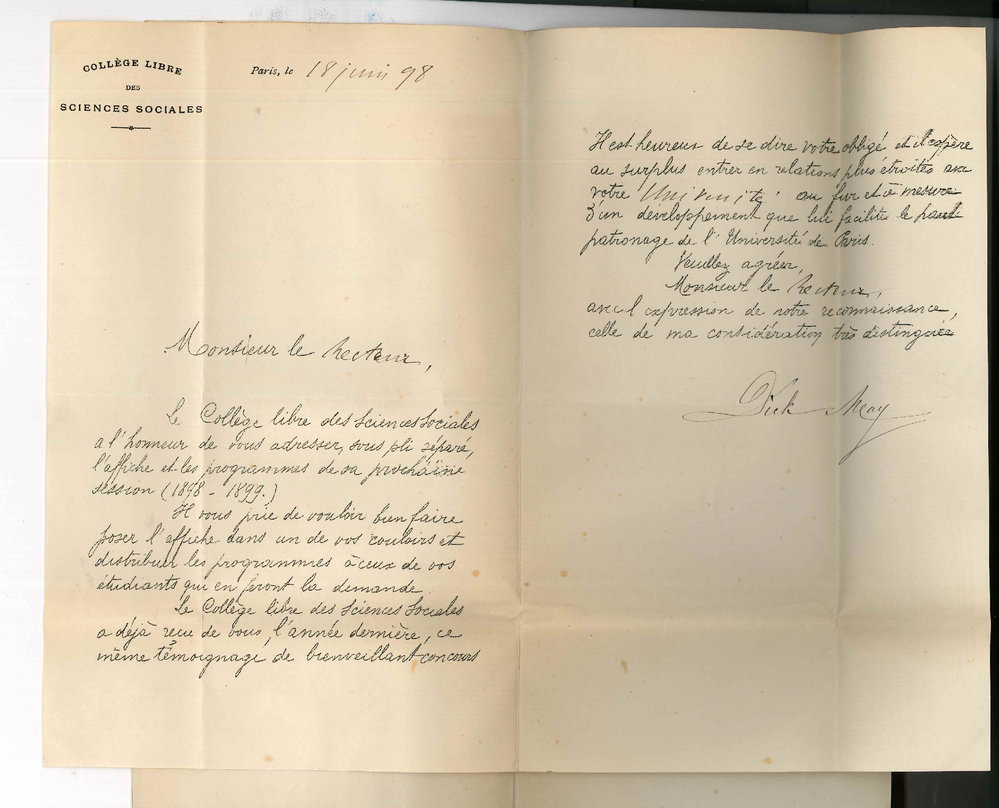 COLLÈGE LIBRE
DES
SCIENCES SOCIALES
Paris, le 18 juin 98
Monsieur le Recteur,
Le Collège libre des Sciences Sociales
a l'honneur de vous adresser, sous pli séparé,
l'affiche et les programmes de sa prochaine
session (1898-1899.)
Il vous prie de vouloir bien faire
poser l'affiche dans un de vos couloirs et
distribuer les programmes à ceux de vos
étudiants qui en feront la demande.
Le Collège libre des Sciences Sociales
a déjà reçu de vous, l'année dernière, ce
même témoignage de bienveillant concours
Il est heureux de se dire votre obligé et il espère
au surplus entrer en relations plus étroites avec
votre Université au fur et à mesure
d'un développement que lui facilite le haut
patronage de l'Université de Paris.
Veuillez agréer,
Monsieur le Recteur,
avec l'expression de notre reconnaissance,
celle de ma considération très distinguée
Dick May